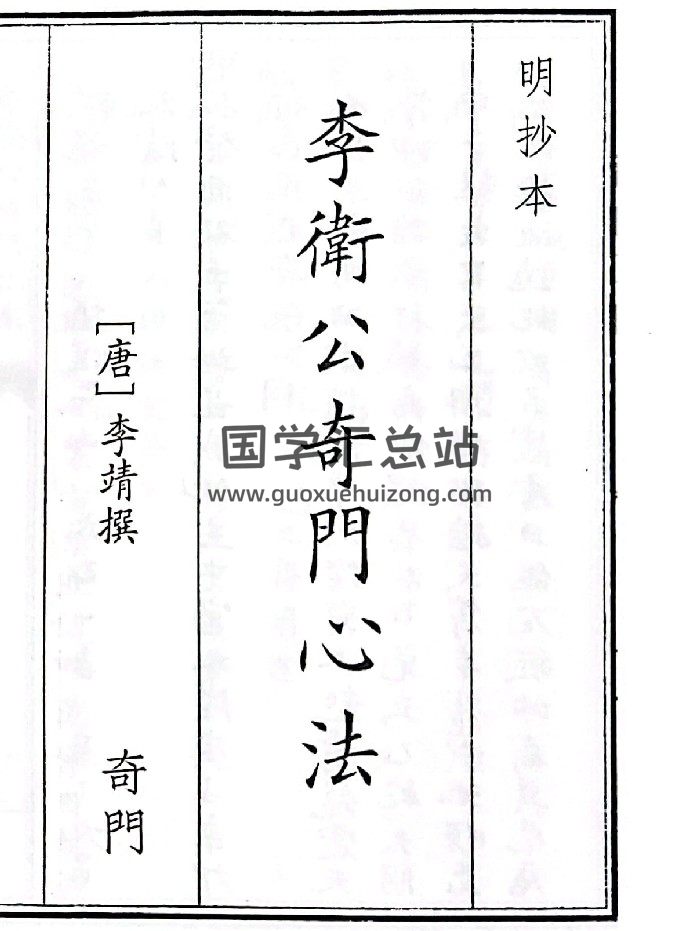 明抄本
李衛公奇門心法
[唐]李靖撰
奇門
国学汇总站
www.guoxuehuizong.com